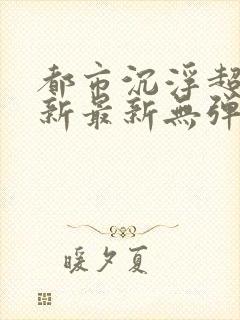 都市沉浮超
新最新無彈
暖夕夏